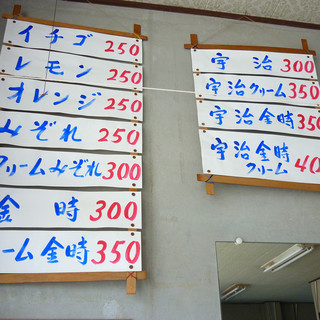 イチゴ 250
レモン 250
オレンジ 250
みぞれ 250
クリームみぞれ 300
金時 300
ーム金時 350
宇治 300
宇治クリーム 350
宇治金時 350
宇治金時
クリーム 40